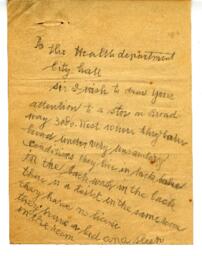 To the Health department
City hall
Sir I wish to draw your
attention to a stor in Broad
way 300. West where they bake
bread under very unsanitary
conditions they live in back
in the back in the back
there is a toilet in the same room
they have no licence
they have a bed and sleep
in the room